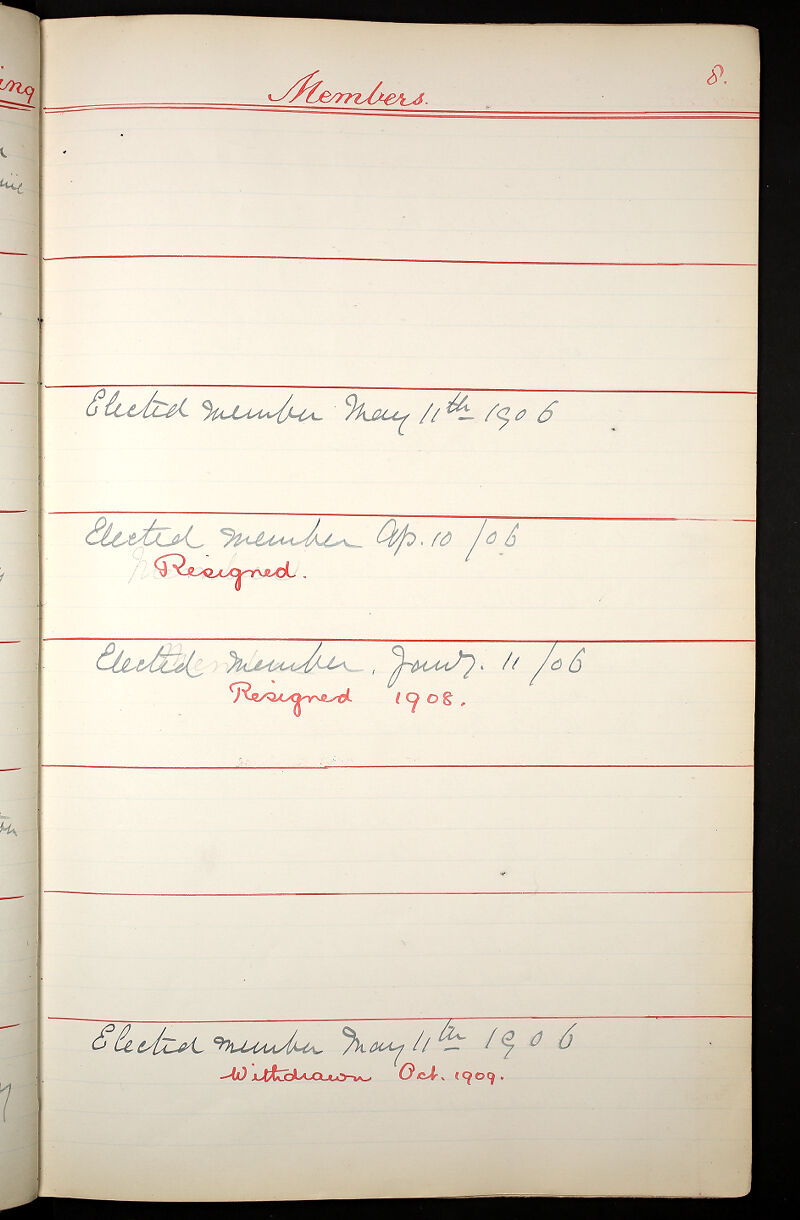 Members.
8.
Elected member May 11th 1906
Elected member Ap. 10 /06
Resigned.
Elected member. Jany. 11 /06
Resigned 1908.
Elected member May 11th 1906
Withdrawn Oct. 1909.